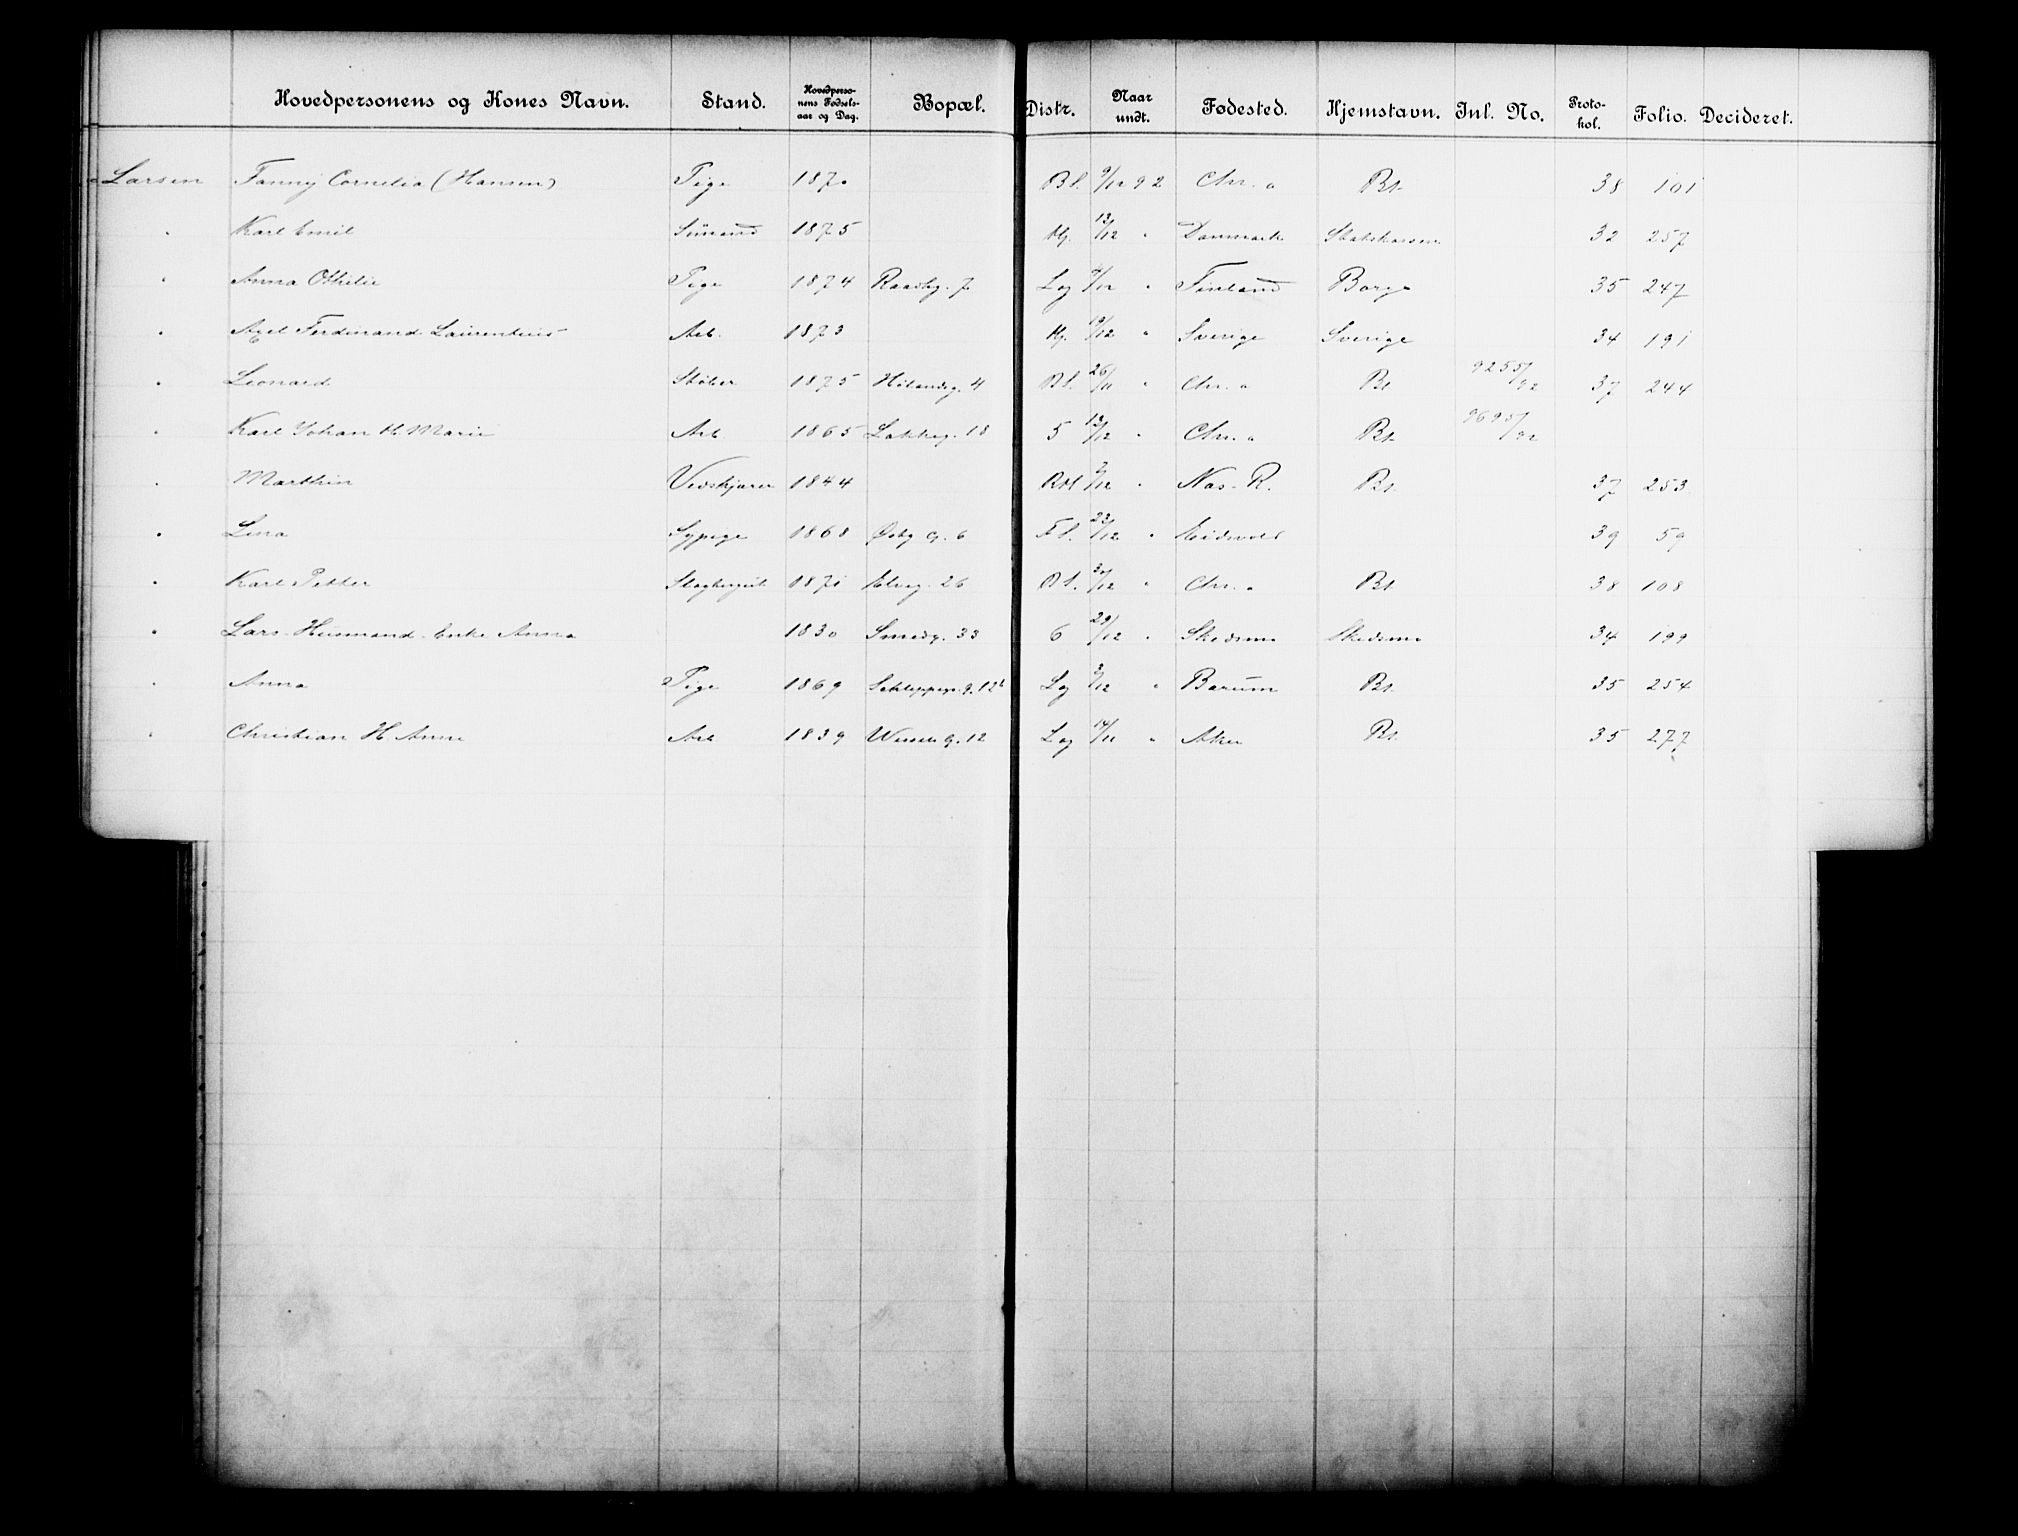 Hovedpersonens og Kones Navn. Stand. Hovedperso-nens Fødsels-aar og Dag. Bopæl. Distr. Naar undt. Fødested. Hjemstavn. Inl. No. Proto-kol. Folio. Decideret.
Larsen Fanny Cornelia (Hansen) Pige 1870 Bl. 9/12 92 Chr.a Bt. 38 101
" Karl Emil Sömand 1875 Hj. 12/12 " Danmark Statskassen 32 257
" Anna Othilie Pige 1874 Raadhg. 7 Lag /12 " Finland Borge 35 247
" Axel Ferdinand Laurentius Arb. 1873 Hj. 19/12 " Sverige Sverige 34 191
" Leonard Støber 1875 4 Bl. 26/11 " Chr.a Bt 9255/92 37 244
" Karl Johan H. Marie Arb. 1865 Lakkeg. 18 5 12/12 " Chr.a Bt. 9695/92
" Marthin Vedskjærer 1844 2/12 " Næs. R. Bt. 37 253
" Lina Sypige 1868 Østby G. 6 Fl. 22/12 " Eidsvold 39 59
" Karl Petter 1871 Elveg. 26 Bl. 30/12 " Chr.a Bt. 38 108
" Lars. Husmand. Enke Anna 1830 Smedg. 33 6 29/12 " Skedsmo Skedsmo 34 199
" Anna Pige 1869 Schleppegr. g. 12b Lag 3/12 " Bærum Bt. 35 254
" Christian H. Anne Arb 1839 Wessels G. 12 Lag 14/11 " Aker Bt. 35 277